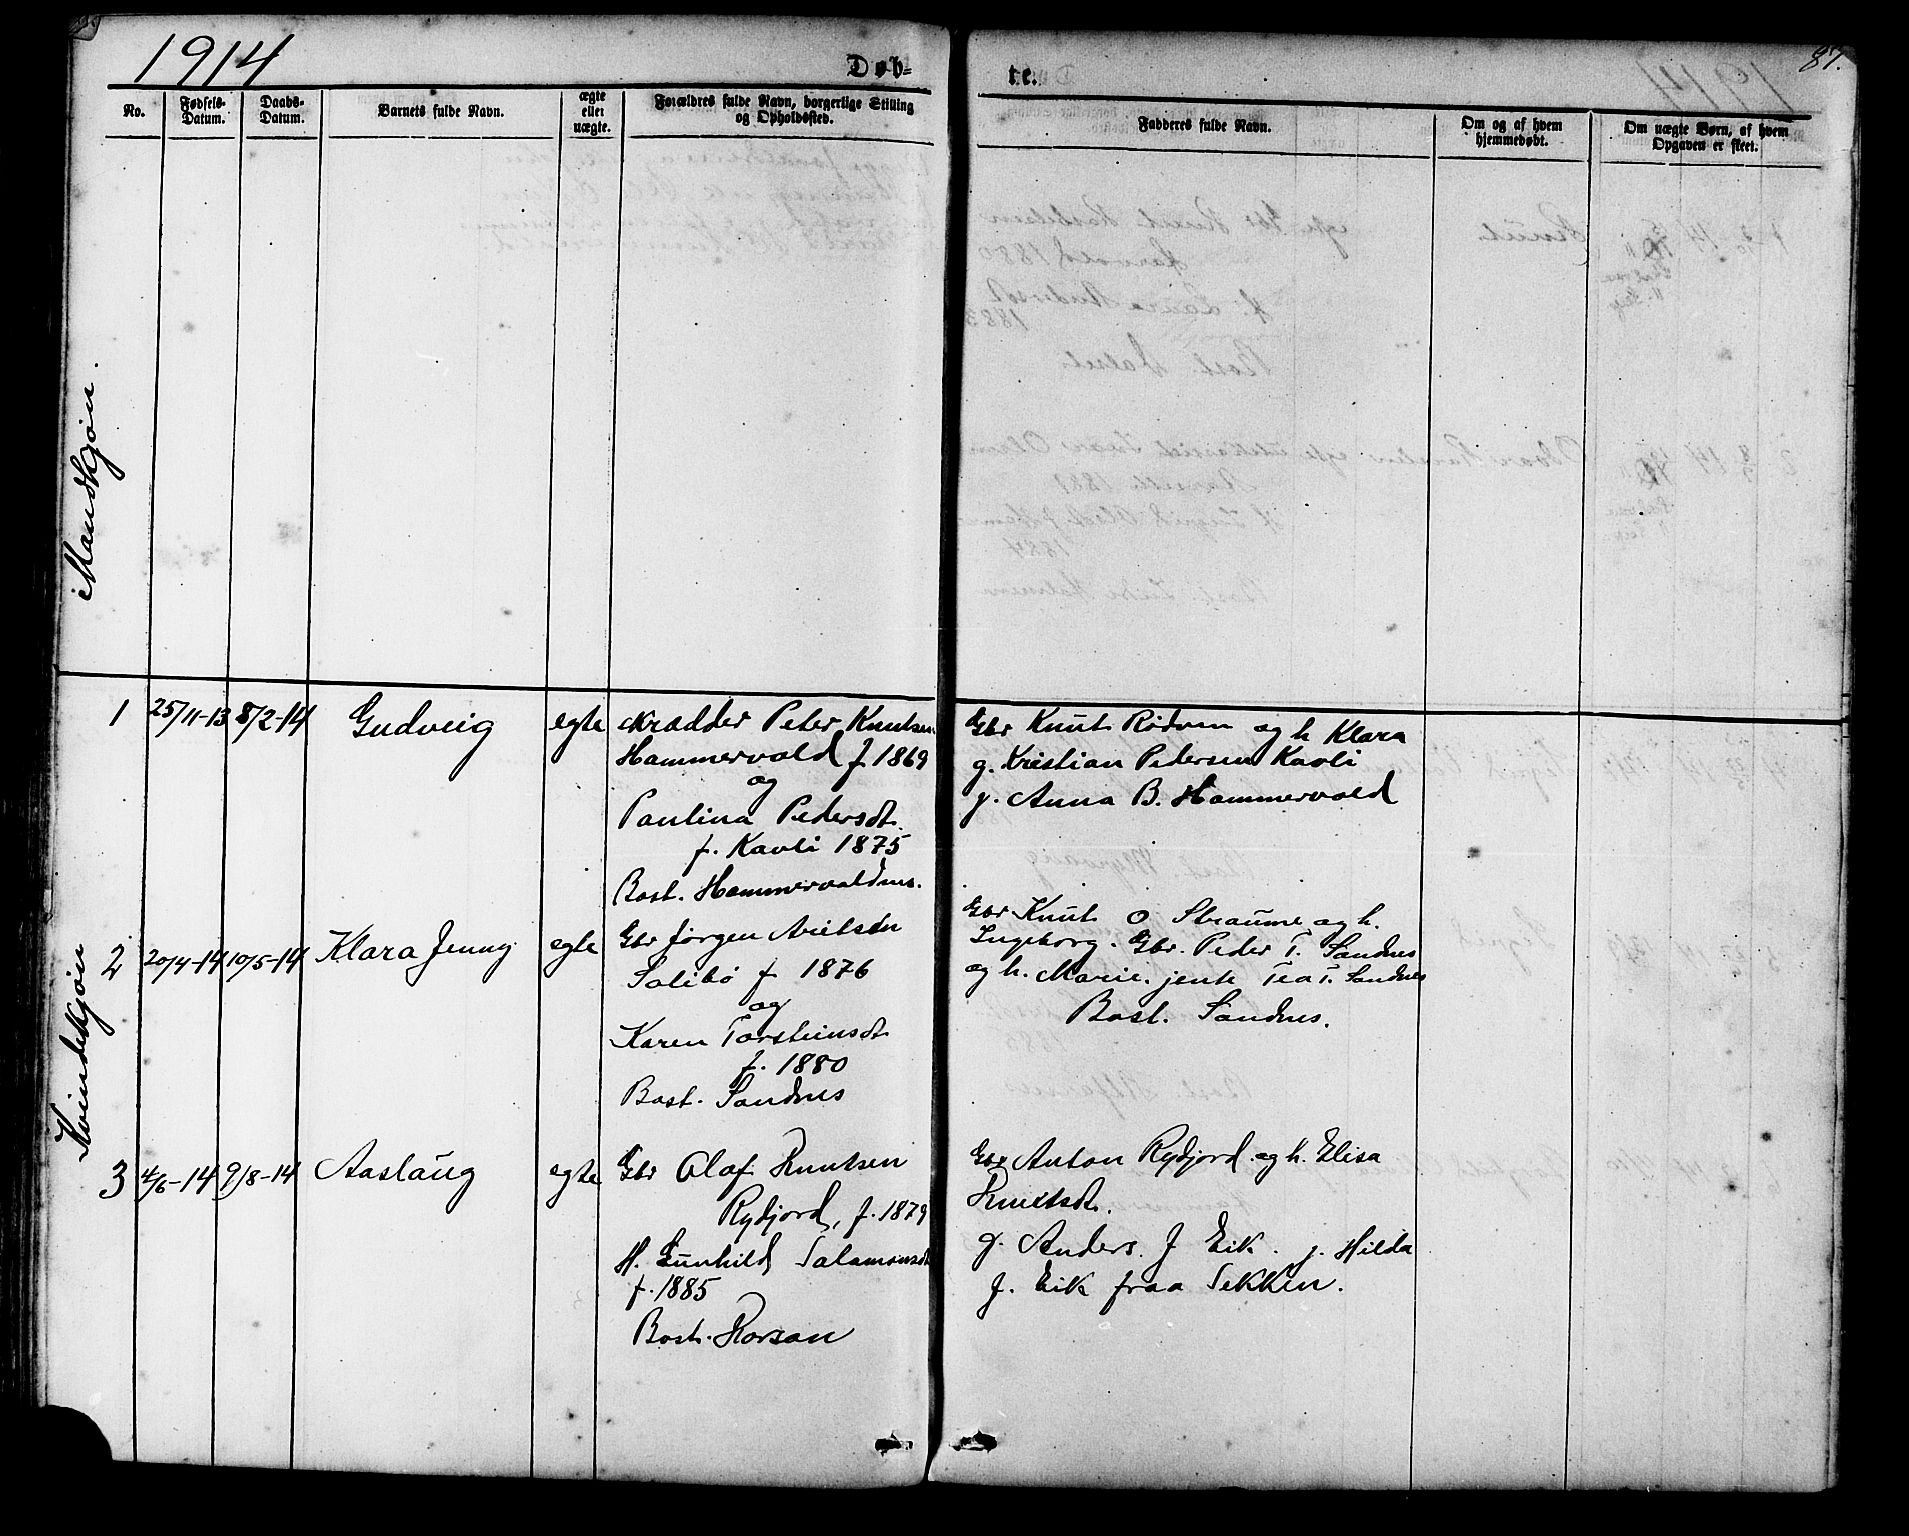 1914
Døb-
te.
87.
No.
Fødsels-
Datum.
Daabs-
Datum.
Barnets fulde Navn.
ægte
eller
uægte.
Forældres fulde Navn, borgerlige Stilling
og Opholdssted.
Fadderes fulde Navn.
Om og af hvem
hjemmedøbt.
Om uægte Børn, af hvem
Opgaven er skeet.
Mandkjøn.
Kvindekjøn
1
25/11-13
8/2-14
Gudveig
egte
Skrædder Peter Knutsen
Hammervold f. 1869
og
Paulina Pedersdt.
f. Kavli 1875
Bost. Hammervoldnes.
Gbr Knut Rødven og h Klara
g. Kristian Pedersen Kavli
p. Anna B. Hammervold
2
20/4-14
10/5-14
Klara Jenny
egte
Gbr Jørgen Arietsen
Solibø f 1876
og
Karen Torsteinsdt
f. 1880
Bost. Sandnes
Gbr Knut O Straume og h.
Ingeborg. Gbr. Peder T. Sandnes
og h. Marie. jente Tea T. Sandnes
Bost. Sandnes.
3
4/6-14
9/8-14
Aaslaug
egte
Gbr Olaf Knutsen
Rydjord, f. 1879
H. Gunhild Salamonsdt
f. 1885
Bost. Korsan
Gbr Anton Rydjord og h. Elisa
Knutsdt.
g. Anders. J Eik. p. Hilda
J. Eik fraa Sekken.